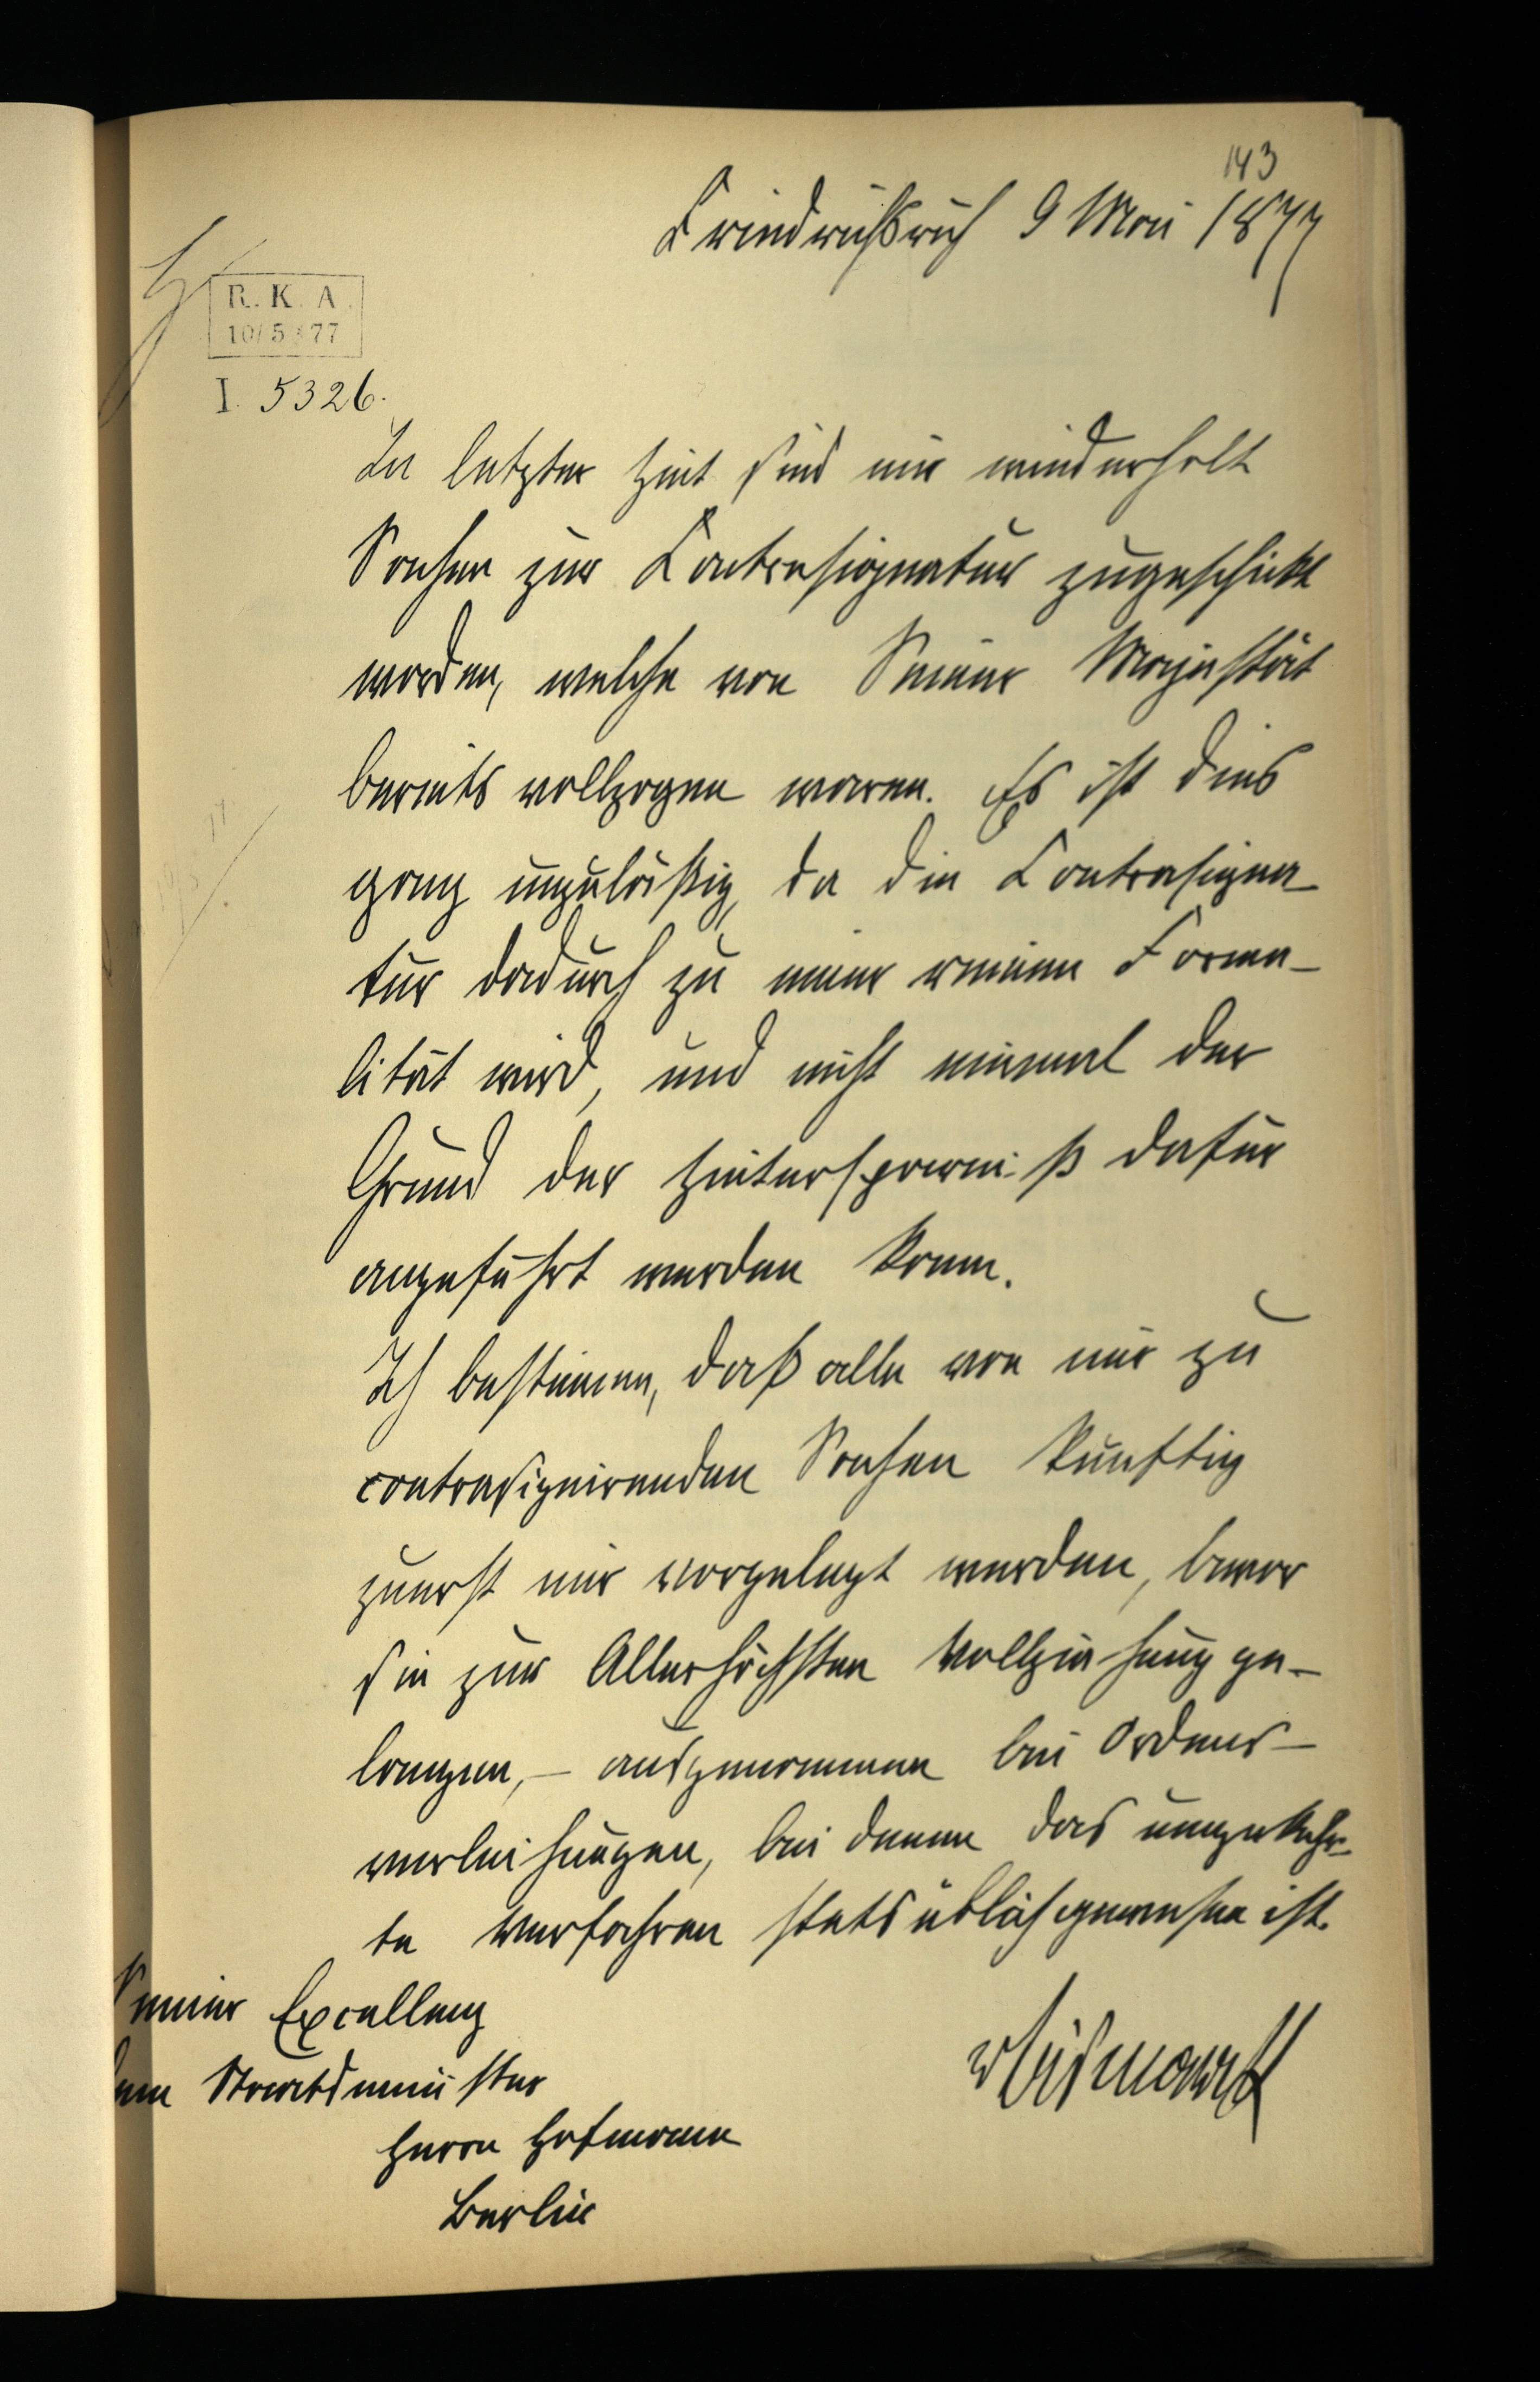 143
Friedrichsruh 9 Mai 1877
R. K. A.
10/5 77
I. 5326.
In letzter Zeit sind mir wiederholt
Sachen zur Contrasignatur zugeschickt
worden, welche von Seiner Majestät
bereits vollzogen waren. Es ist dies
ganz unzuläßig, da die Contrasigna-
tur dadurch zu einer reinen Forma-
lität wird, und nicht einmal der
Grund der Zeitersparniß dafür
angeführt werden kann.
Ich bestimme, daß alle von mir zu
contrasignirenden Sachen künftig
zuerst mir vorgelegt werden, bevor
sie zur Allerhöchsten Vollziehung ge-
langen, - ausgenommen bei Ordens-
verleihungen, bei denen das umgekehr-
te Verfahren stets üblich gewesen ist.
vBismarck
Seiner Excellenz
dem Staatsminister
Herrn Hofmann
Berlin